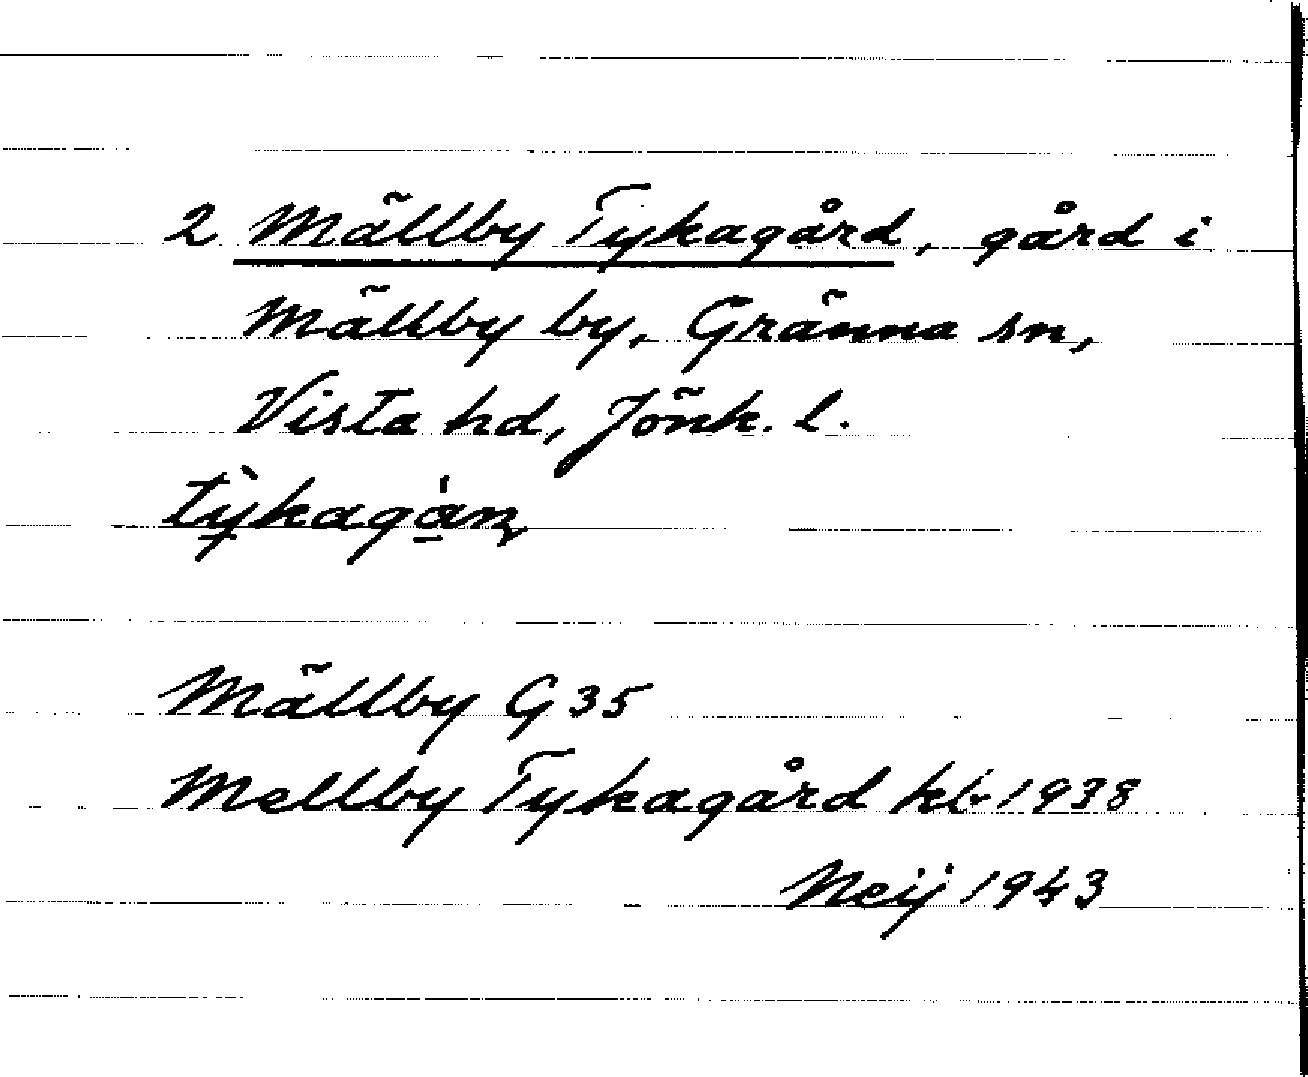 2 Mällby Tykagård, gård i
Mällby by, Gränna sn,
Vista hd, Jönk. l.
Mällby G 35
Mellby Tykagård kb 1938
Neij 1943